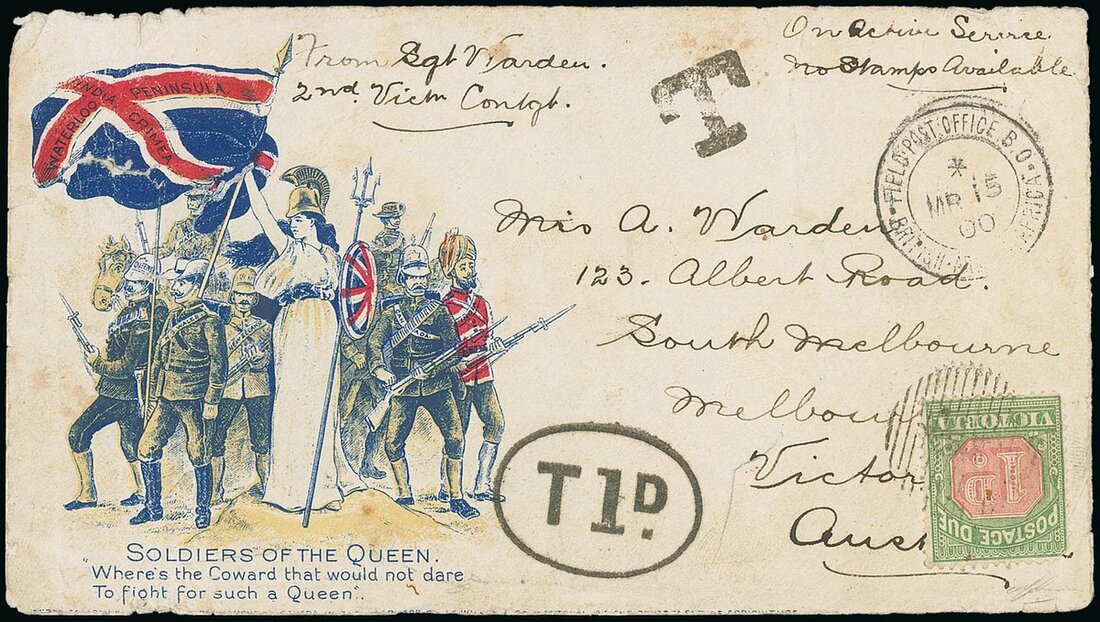 From Sgt Warden.
2nd Victn Contgt.
On active Service
No Stamps Available
T
FIELD POST OFFICE B.O
BRITISH
MR 13
00
INDIA PENINSULA.
WATERLOO CRIMEA.
Mrs A. Warden
123. Albert Road.
South Melbourne
T 1D.
VICTORIA
1D
POSTAGE DUE
SOLDIERS OF THE QUEEN.
"Where's the Coward that would not dare
To fight for such a Queen".